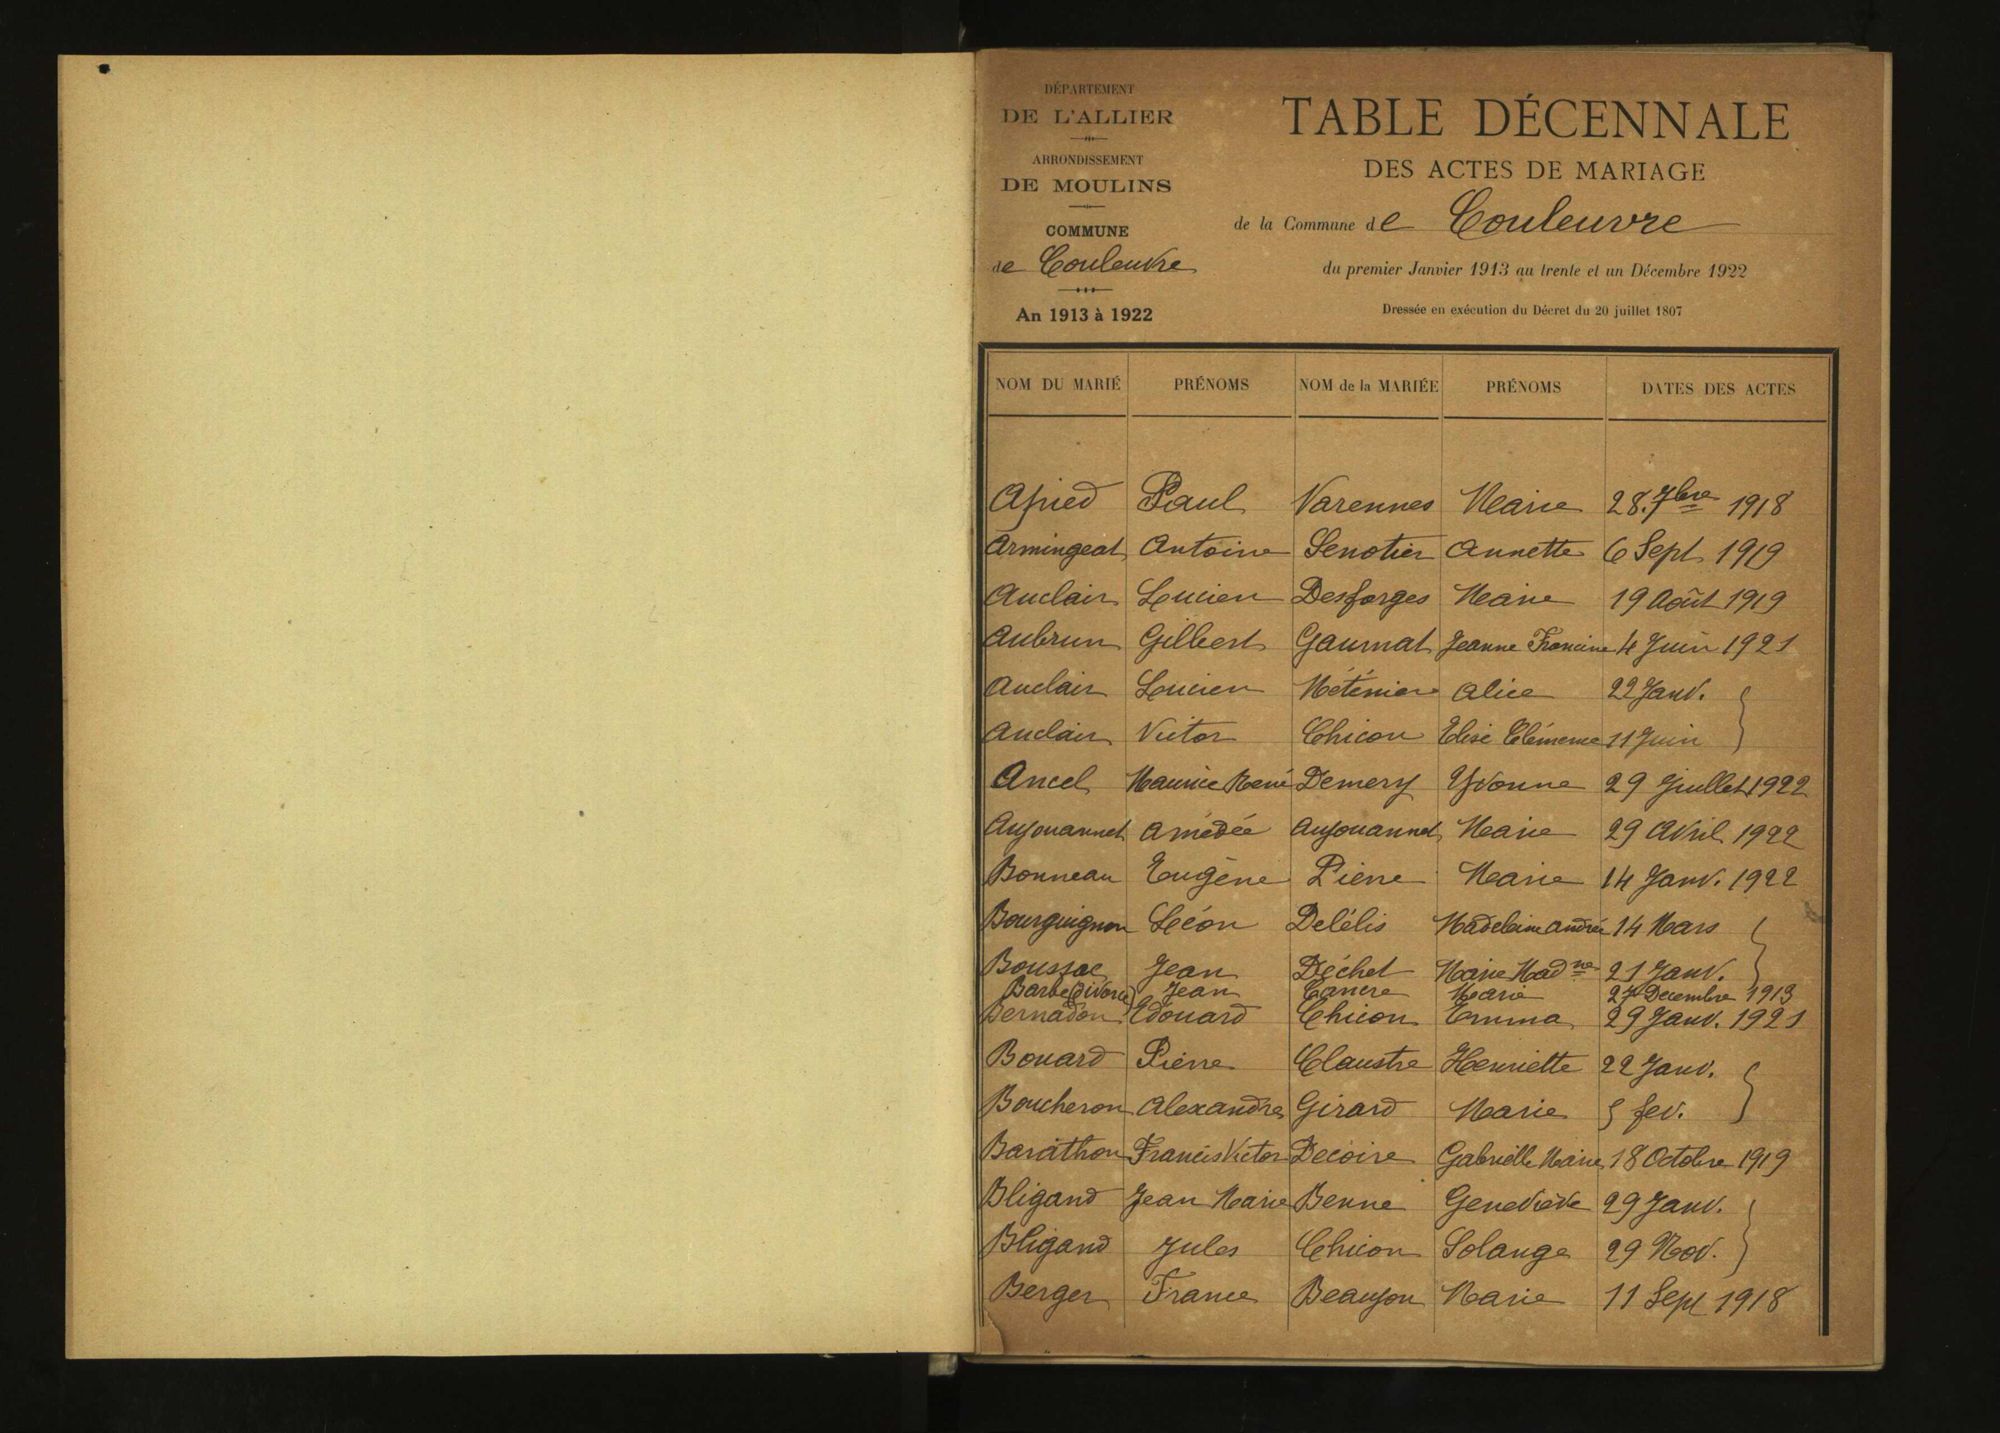 DÉPARTEMENT
DE L'ALLIER
ARRONDISSEMENT
DE MOULINS
COMMUNE
de Couleuvre
An 1913 à 1922
TABLE DÉCENNALE
DES ACTES DE MARIAGE
de la Commune de Couleuvre
du premier Janvier 1913 au trente et un Décembre 1922
Dressée en exécution du Décret du 20 juillet 1807
NOM DU MARIÉ PRÉNOMS NOM de la MARIÉE PRÉNOMS DATES DES ACTES
Paul Varennes Marie 28. 7bre 1918
Armingeat Antoine Senotier Annette 6 Sept 1919
Auclair Lucien Desforges Marie 19 Août 1919
Aubrun Gilbert Gaumat Jeanne Francine 4 Juin 1921
Auclair Lucien Méténier Alice 22 Janv.
Auclair Victor Chicon Elise Clémence 11 Juin
Ancel Maurice René Demery Yvonne 29 Juillet 1922
Aujouannet Amédée Aujouannet Marie 29 Avril 1922
Bonneau Eugène Pierre Marie 14 Janv. 1922
Bourguignon Léon Delélis Madeleine Andrée 14 Mars
Boussac Jean Déchet Marie Madne 21 Janv.
Barbe (divorce) Jean Cancre Marie 27 Décembre 1913
Bernadon Edouard Chicon Emma 29 Janv. 1921
Bouard Pierre Claustre Henriette 22 Janv.
Boucheron Alexandre Girard Marie 5 fev.
Barathon Francis Victor Decoire Gabrielle Marie 18 Octobre 1919
Bligand Jean Marie Benne Geneviève 29 Janv.
Bligand Jules Chicon Solange 29 Nov.
Berger France Beaujon Marie 11 Sept 1918